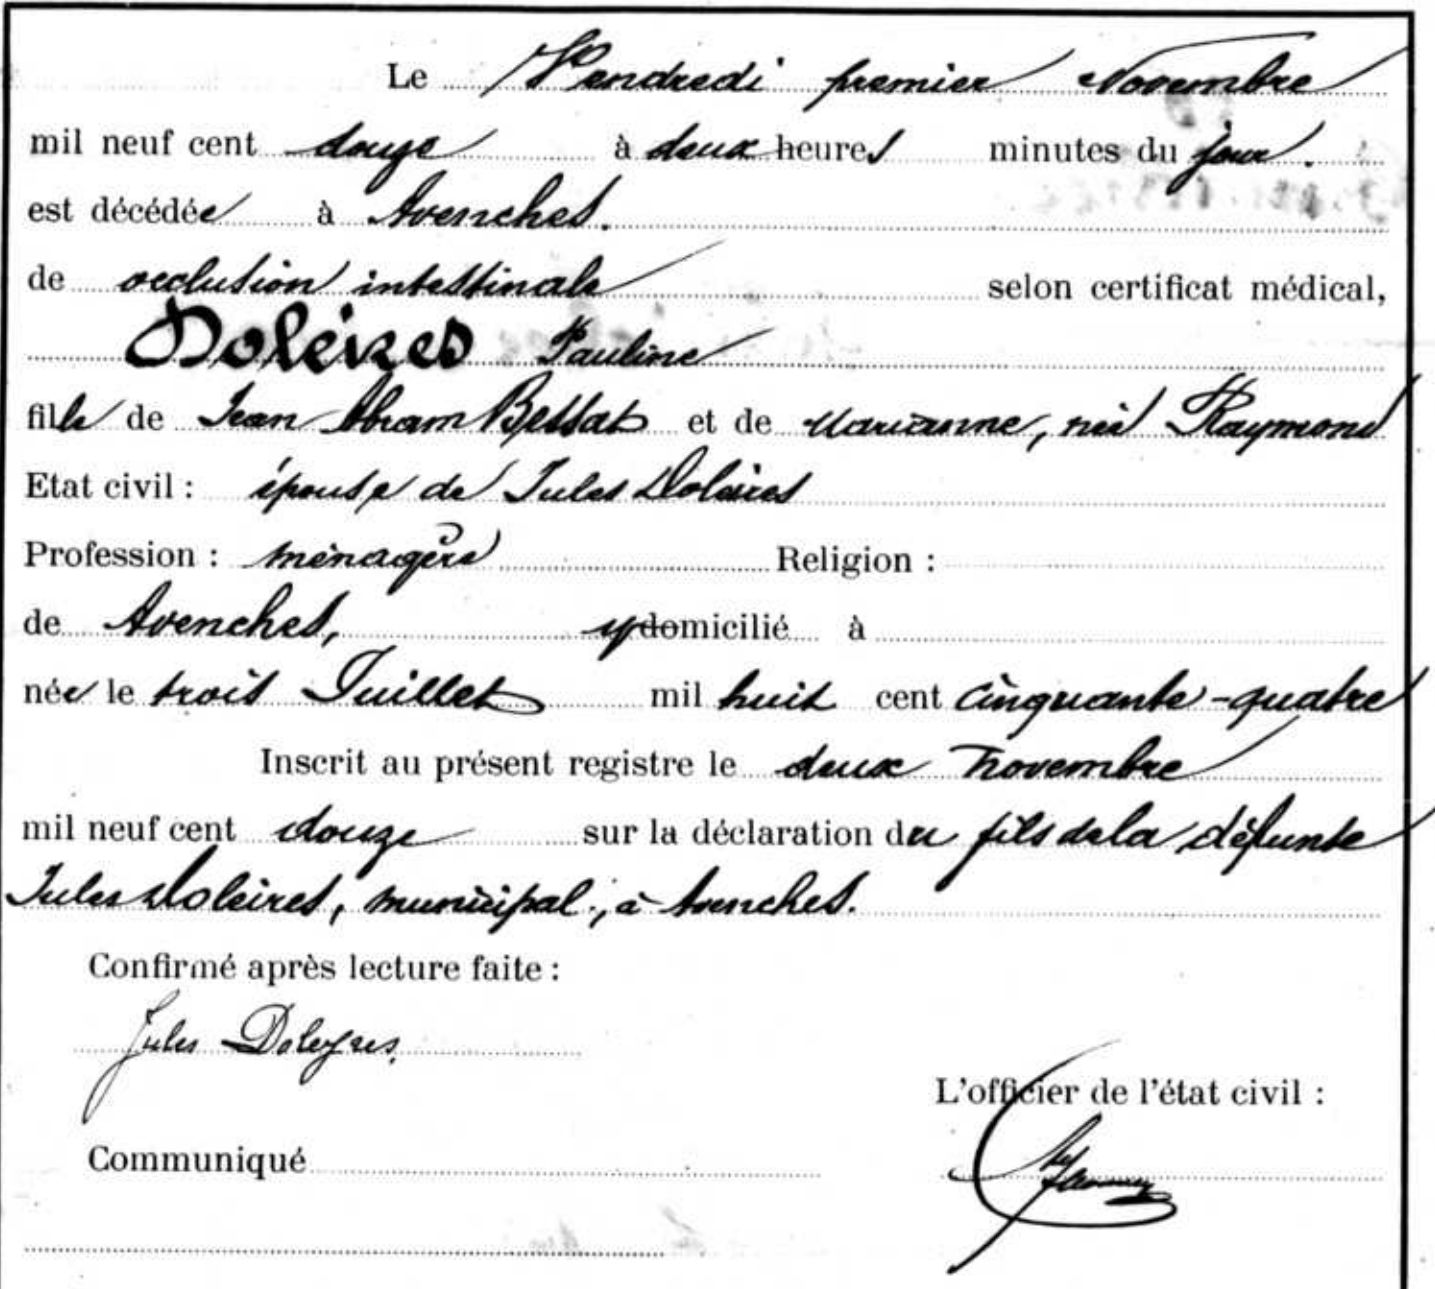 Le Vendredi premier Novembre
mil neuf cent douze à deux heures minutes du jour.
est décédée à Avenches.
de occlusion intestinale selon certificat médical,
Doleires Pauline
fille de Jean Abram Bessat et de Marianne, née Raymond
Etat civil : épouse de Jules Doleires
Profession : ménagère Religion :
de Avenches, y domicilié à
née le trois Juillet mil huit cent cinquante-quatre
Inscrit au présent registre le deux novembre
mil neuf cent douze sur la déclaration du fils de la défunte
Jules Doleires, municipal, à Avenches.
Confirmé après lecture faite :
Jules Doleyres
L'officier de l'état civil :
Communiqué